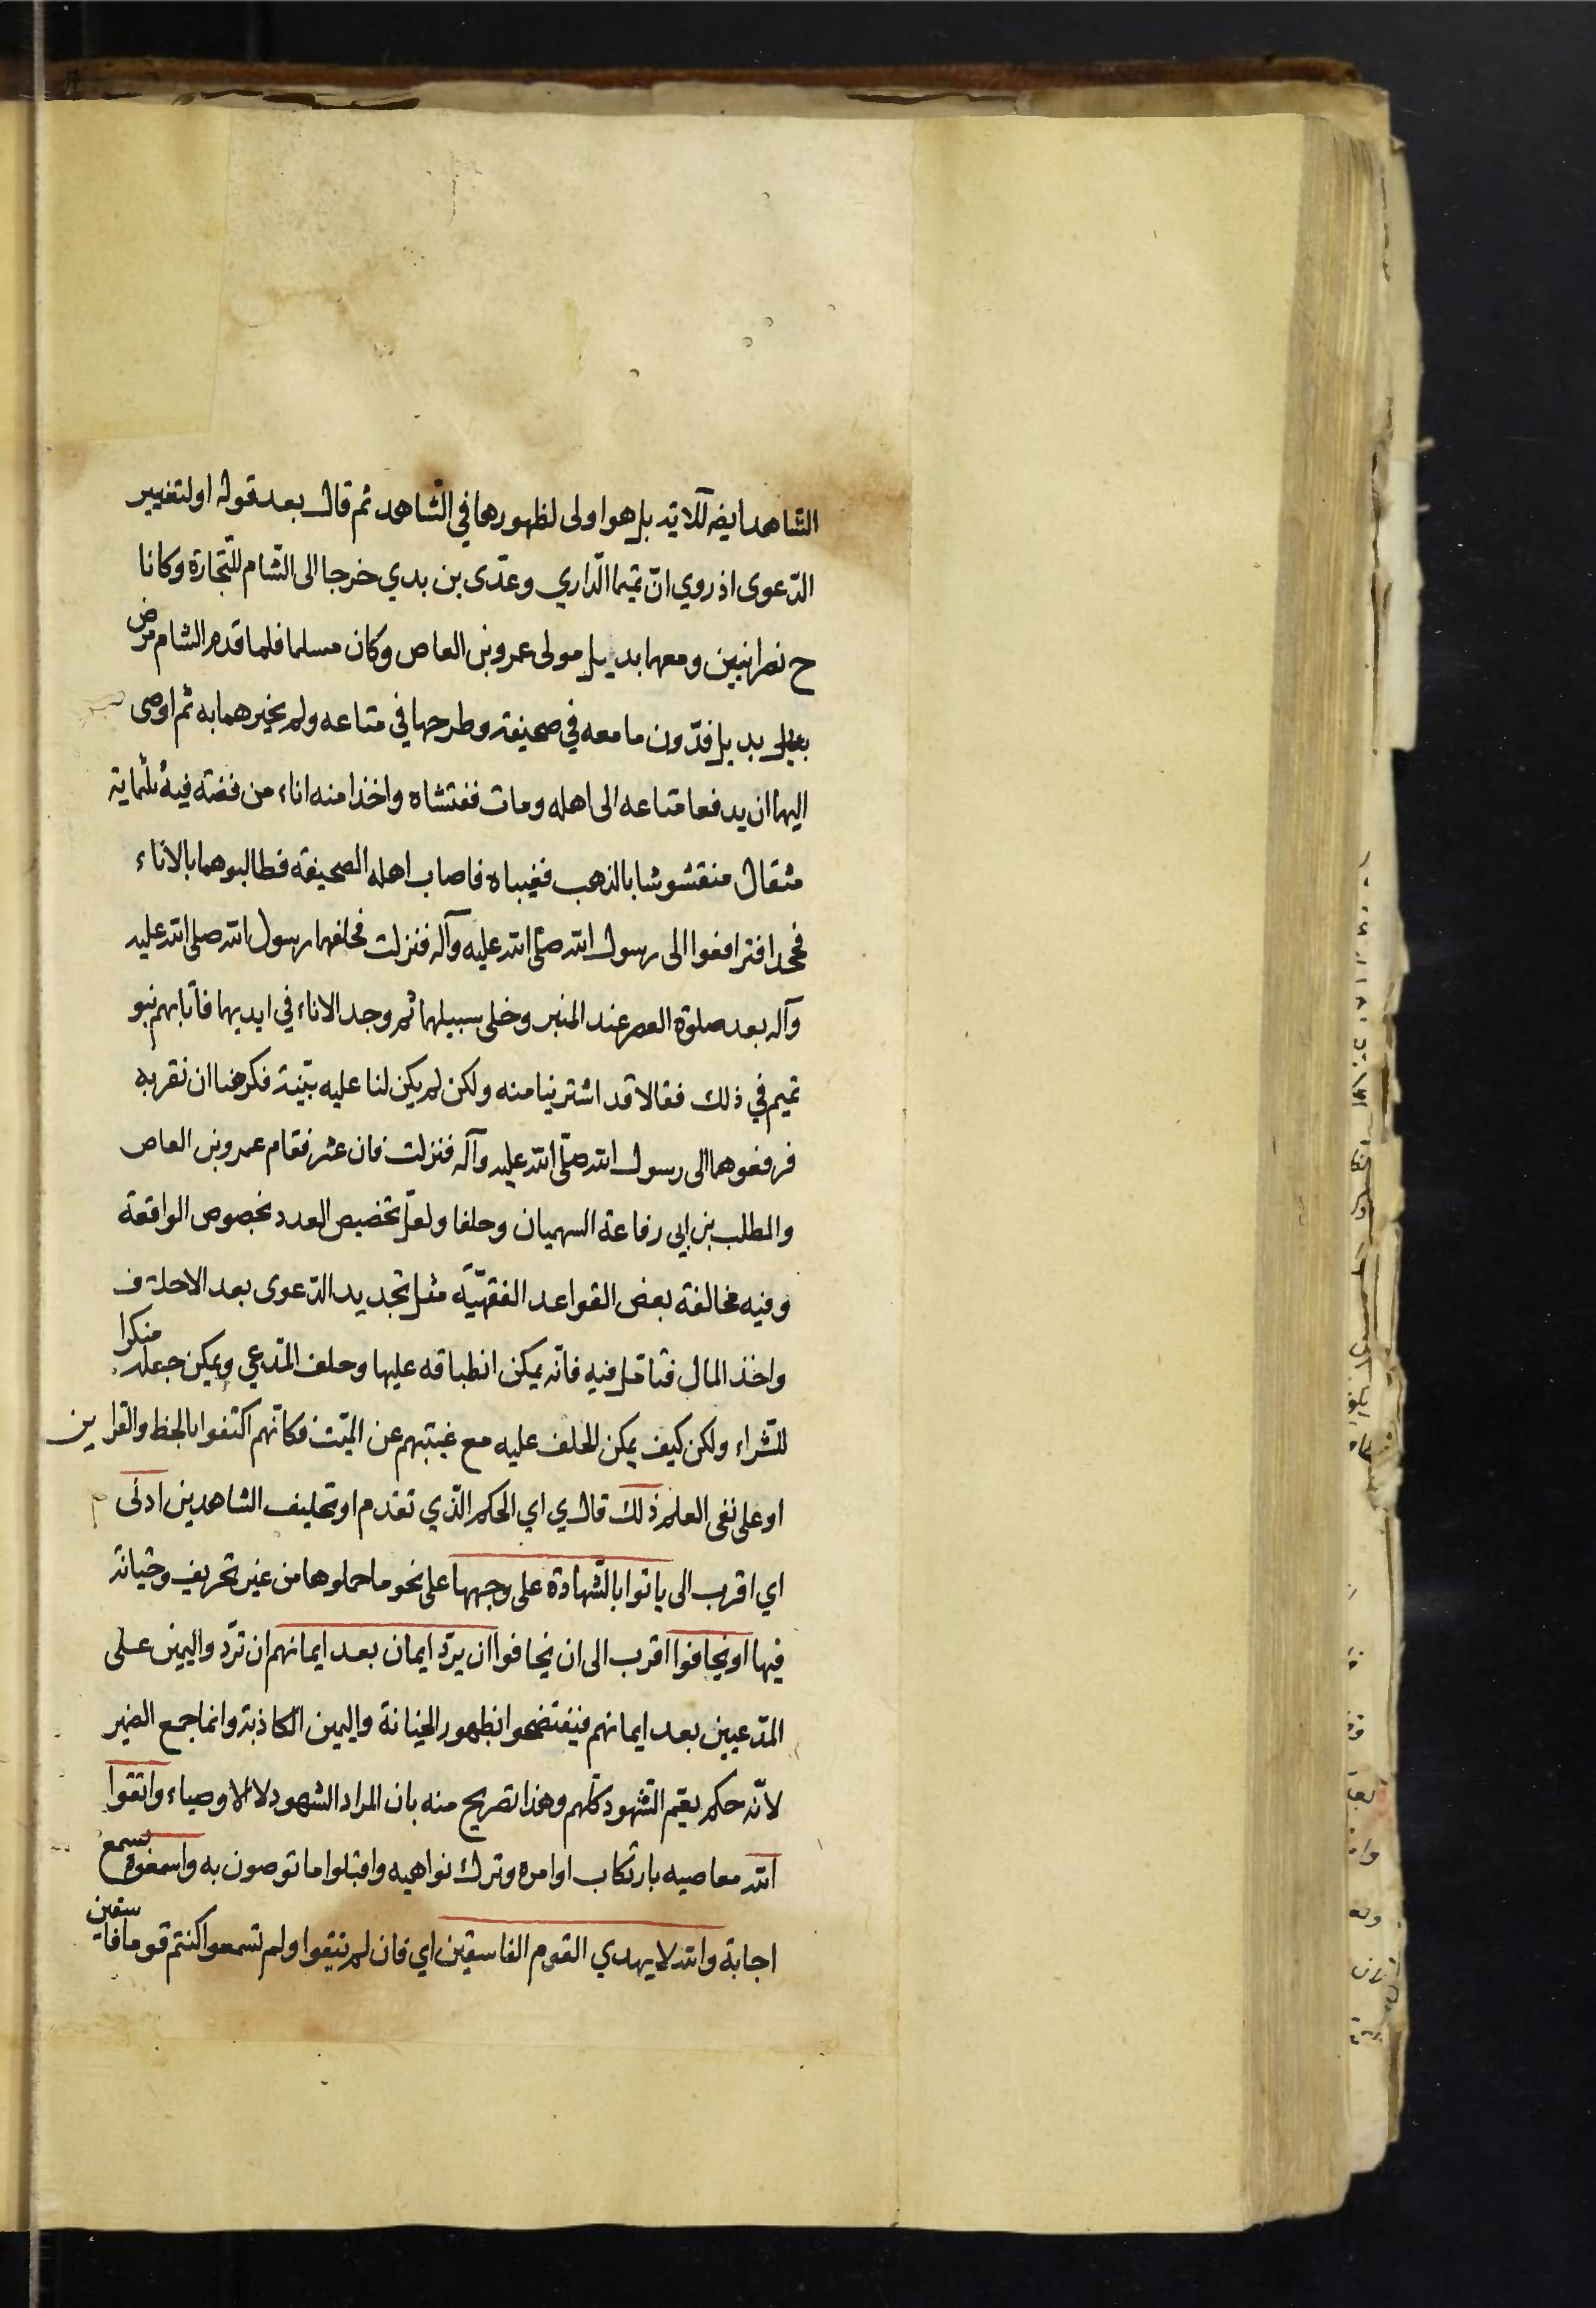 الشاهد ايضه للاية بل هو اولى لظهورها في الشاهد ثم قال بعد قوله او لتغيير
الدّعوى اذ روي انّ تميما الدّاري وعدّى بن بدي خرجا الى الشّام للتّجارة وكانا
ح نصرانيين ومعهما بديل مولى عمرو بن العاص وكان مسلما فلما قدم الشام مرض
بديل فدّون ما معه في صحيفة وطرحها في متاعه ولم يخبرهما به ثم اوصى
اليهما ان يدفعا متاعه الى اهله ومات ففتشاه واخذا منه اناء من فضة فيه ثلثماية
مثقال منقشوشا بالذهب فغيباه فاصاب اهله الصحيفة فطالبوهما بالاناء
فجحدا فترافعوا الى رسول الله صلّى الله عليه وآله فنزلت فحلفهما رسول الله صلى الله عليه
وآله بعد صلوة العصر عند المنبر وخلى سبيلهما ثم وجد الاناء في ايديهما فأتاهم بنو
تميم في ذلك فقالا قد اشترينا منه ولكن لم يكن لنا عليه بيّنة فكرهنا ان نقر به
فرفعوهما الى رسول الله صلّى الله عليه وآله فنزلت فان عثر فقام عمرو بن العاص
والمطلب بن ابي رفاعة السهميان وحلفا ولعل تخصيص العدد بخصوص الواقعة
وفيه مخالفة بعض القواعد الفقهيّة مثل تجديد الدّعوى بعد الاحلاف
واخذ المال فتامّل فيه فانّه يمكن انطباقه عليها وحلف المدّعي ويمكن جعله منكرا
للشّراء ولكن كيف يمكن للحلف عليه مع غيبتهم عن الميّت فكانّهم اكتفوا بالخط والقراين
او على نفى العلم ذلك قال ي اي الحكم الّذي تقدم او تحليف الشاهدين ادنى
اي اقرب الى ياتوا بالشّهادة على وجهها على نحو ما حملوها من غير تحريف وخيانة
فيها او يخافوا اقرب الى ان يخافوا ان يردّ ايمان بعد ايمانهم ان تردّ واليمين على
المدّعيين بعد ايمانهم فيفتضحوا بظهور الخيانة واليمين الكاذبة وانما جمع الضمير
لانّه حكم يعمّ الشّهود كلّهم وهذا تصريح منه بان المراد الشهود لا الاوصياء واتقوا
الله معاصيه بارتكاب اوامره وترك نواهيه واقبلوا ما توصون به واسمعوه بسمع
اجابة والله لا يهدي القوم الفاسقين اي فان لم تتقوا ولم تسمعوا كنتم قوما فاسقين